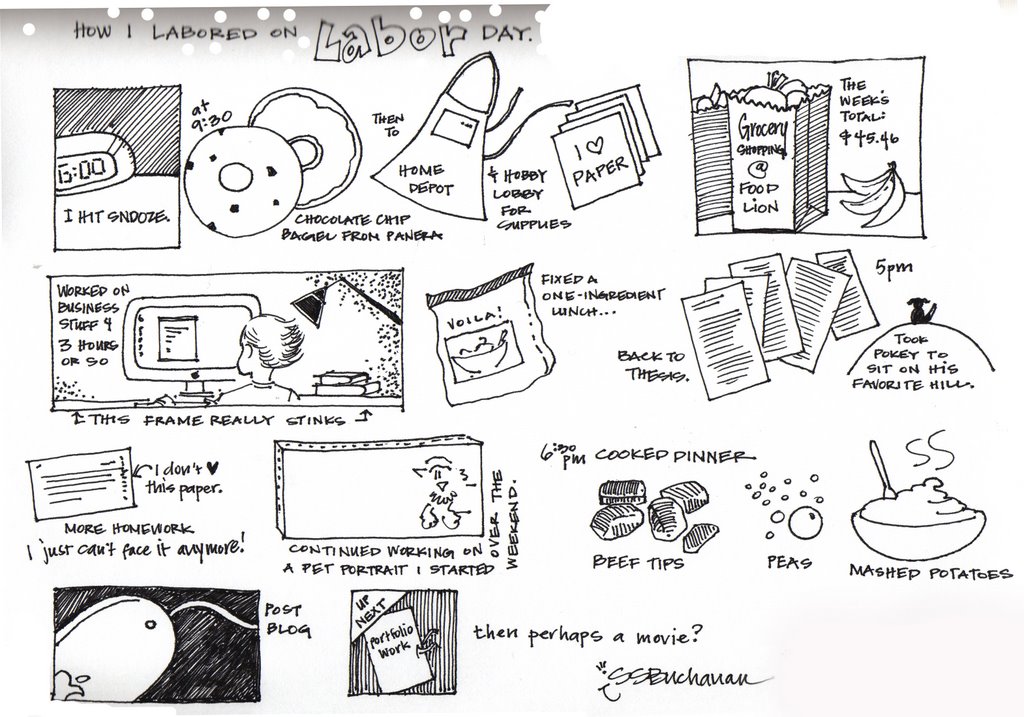 HOW I LABORED ON LABOR DAY.
6:00
I HIT SNOOZE.
at
9:30
CHOCOLATE CHIP
BAGEL FROM PANERA
THEN
TO
HOME
DEPOT
& HOBBY
LOBBY
FOR
SUPPLIES
I ♡
PAPER
Grocery
SHOPPING
@
FOOD
LION
THE
WEEK'S
TOTAL:
$45.46
WORKED ON
BUSINESS
STUFF 4
3 HOURS
OR SO
↑ THIS FRAME REALLY STINKS ↑
VOILA!
FIXED A
ONE-INGREDIENT
LUNCH...
BACK TO
THESIS.
5pm
TOOK
POKEY TO
SIT ON HIS
FAVORITE HILL.
I don't ♥
this paper.
MORE HOMEWORK
I just can't face it anymore!
CONTINUED WORKING ON
A PET PORTRAIT I STARTED
OVER THE
WEEKEND.
6:30 pm COOKED DINNER
BEEF TIPS
PEAS
MASHED POTATOES
POST
BLOG
UP
NEXT
portfolio
work
then perhaps a movie?
SSBuchanan